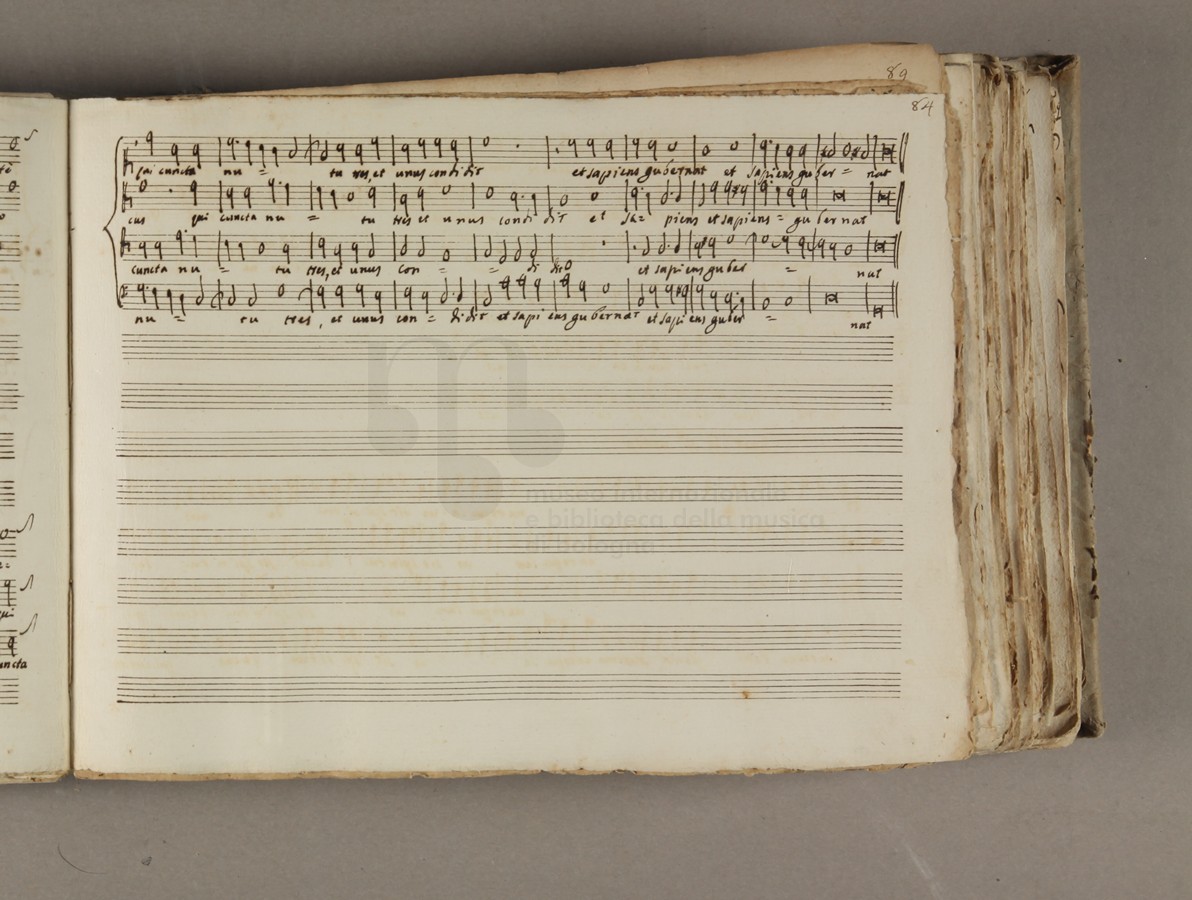 89
84
qui cuncta nu = tu tres, et unus condidit et sapiens gubernat et sapiens guber = nat
cus qui cuncta nu = tu tres et unus condi dit et sa = piens et sapiens = gu bernat
cuncta nu = tu tres, et unus con = = di dit et sapiens guber = nat
nu = tu tres, et unus con = didit et sapi ens gubernat et sapi ens guber = nat
museo internazionale
e biblioteca della musica
di Bologna
uncta